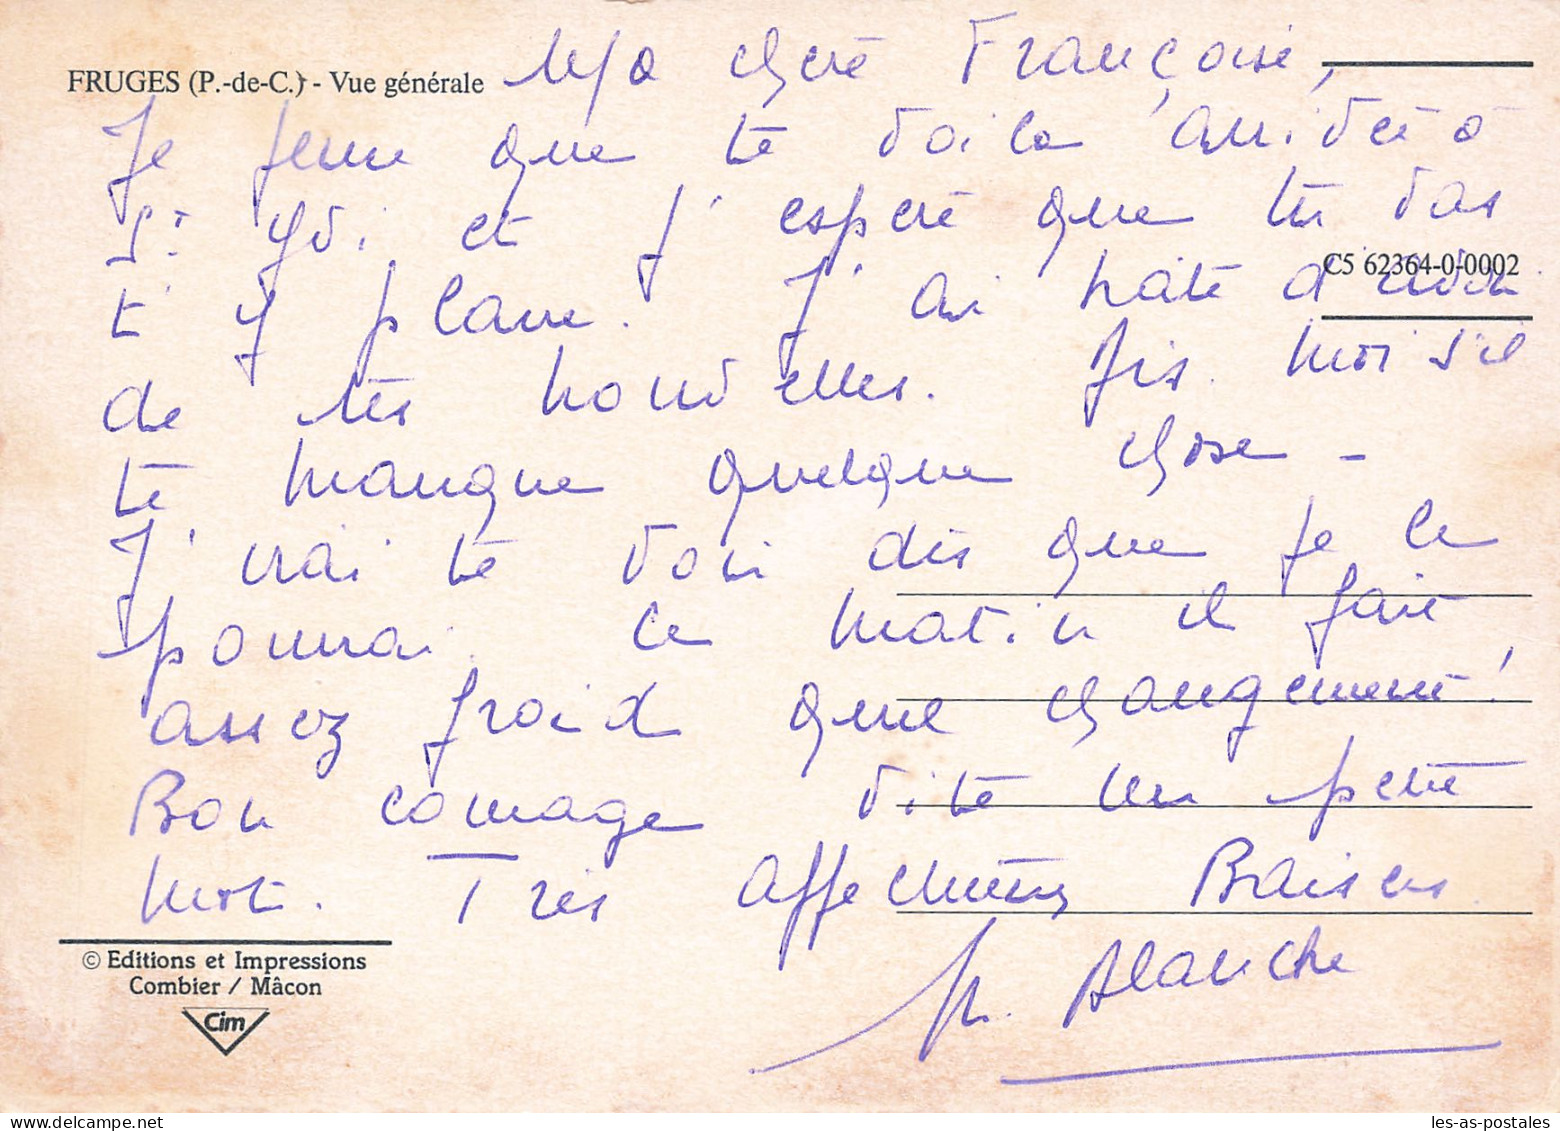 FRUGES (P.-de-C.) - Vue générale
Ma chère Françoise,
Je pense que te voila arrivée à
St Yvi et j'espère que tu vas
t'y plaire. J'ai hâte d'avoir
C5 62364-0-0002
de tes nouvelles. Dis moi s'il
te manque quelque chose -
J'irai te voir dès que je le
pourrai. Ce matin il fait
assez froid quel changement!
Bon courage vite un petit
mot. Très affectueux Baisers
M. Blanche
© Editions et Impressions
Combier / Mâcon
Cim
les-as-postales